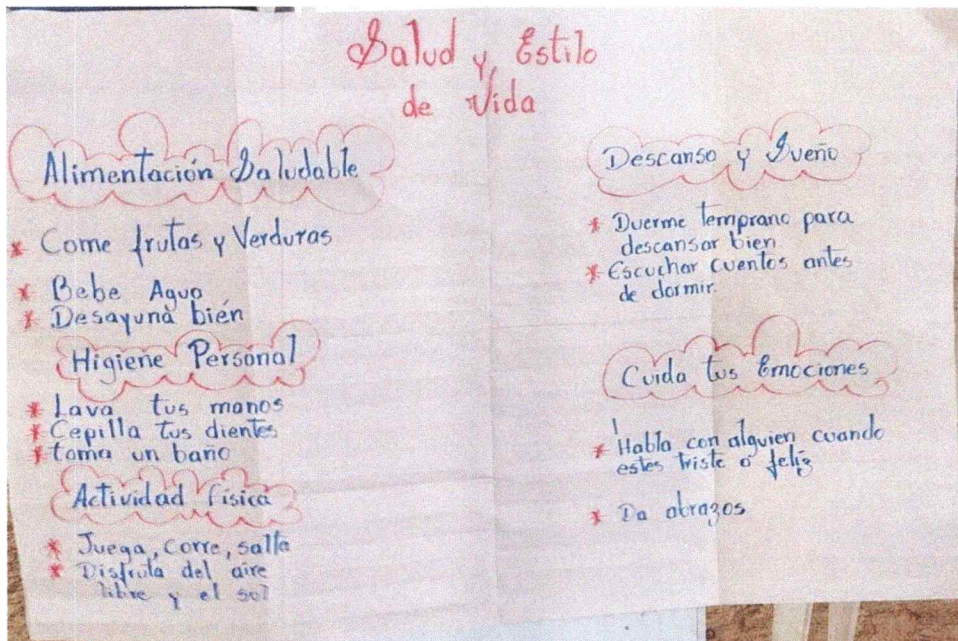 Salud y Estilo
de Vida
Alimentación Saludable
* Come frutas y Verduras
* Bebe Agua
* Desayuna bién
Higiene Personal
* Lava tus manos
* Cepilla tus dientes
* toma un baño
Actividad física
* Juega, corre, salta
* Disfruta del aire
libre y el sol
Descanso y Sueño
* Duerme temprano para
descansar bien
* Escuchar cuentos antes
de dormir.
Cuida tus Emociones
* Habla con alguien cuando
estes triste o feliz
* Da abrazos